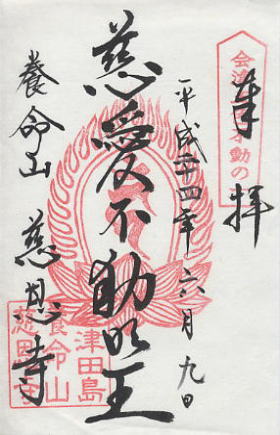 奉拝
平成二十四年六月九日
慈愛不動明王
養命山 慈恩寺
津田島
養命山
慈恩寺